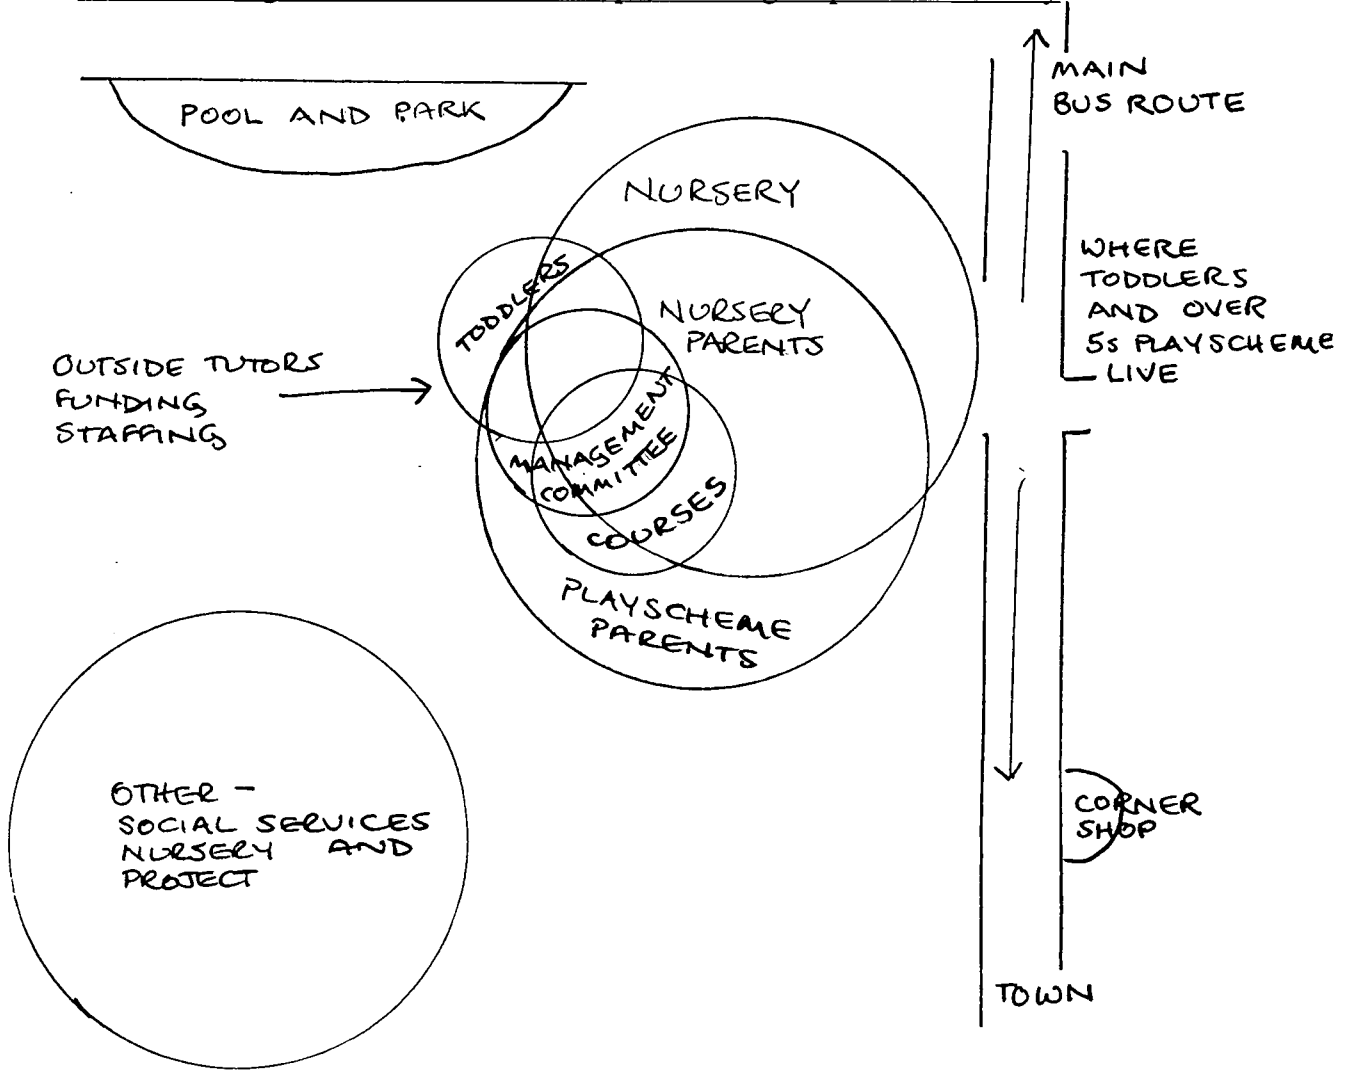 POOL AND PARK
MAIN
BUS ROUTE
NURSERY
WHERE
TODDLERS
AND OVER
5s PLAYSCHEME
LIVE
TODDLERS
NURSERY
PARENTS
OUTSIDE TUTORS
FUNDING
STAFFING
MANAGEMENT
COMMITTEE
COURSES
PLAYSCHEME
PARENTS
OTHER –
SOCIAL SERVICES
NURSERY AND
PROJECT
CORNER
SHOP
TOWN